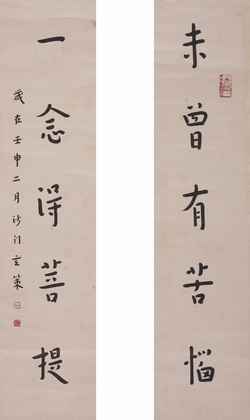 未曾有苦惱
一念得菩提
歲在壬申二月沙门玄策